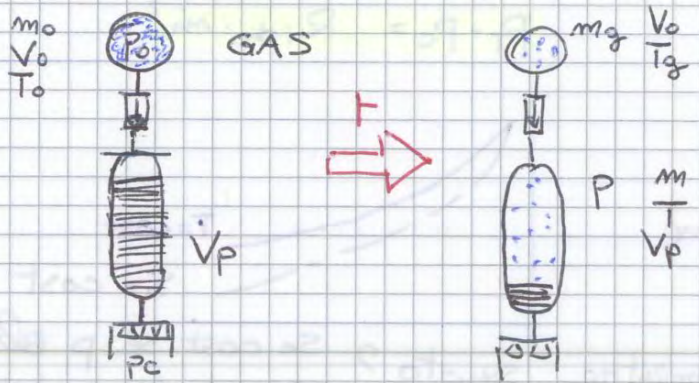 m₀
V₀
T₀
P₀
GAS
V̇p
pc
t
mg
V₀
Tg
P
m
T
Vp